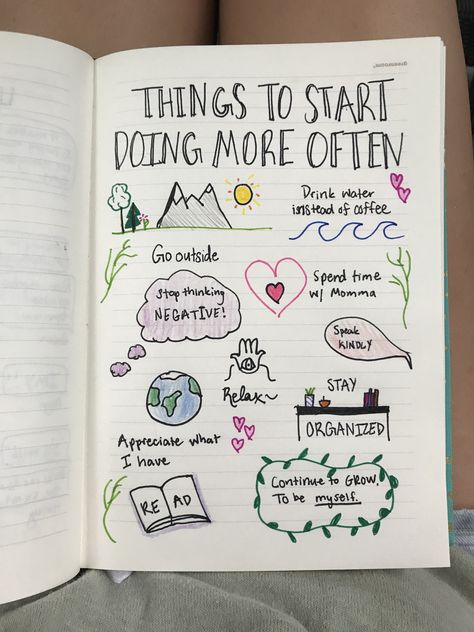 THINGS TO START
DOING MORE OFTEN
Drink water
instead of coffee
Go outside
Stop thinking
NEGATIVE!
Spend time
w/ Momma
Speak
KINDLY
Relax~
STAY
ORGANIZED
Appreciate what
I have
RE AD
Continue to GROW,
To be myself.